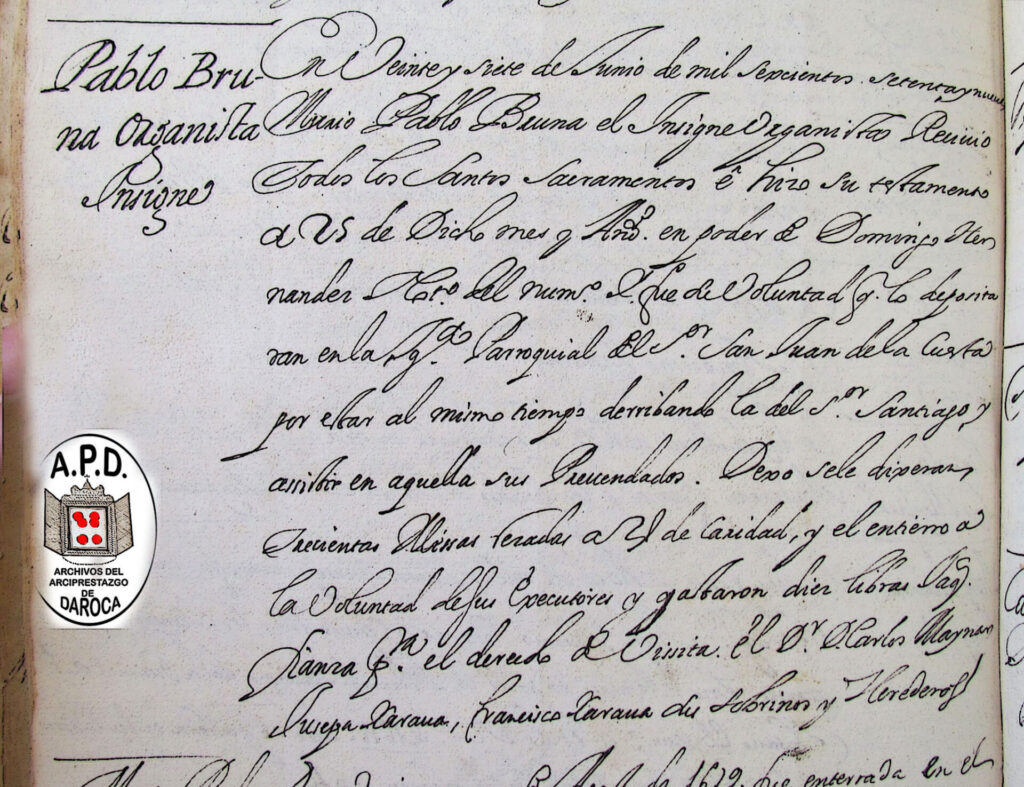 Pablo Bru-
na Organista
Insigne
En Veinte y siete de Junio de mil seycientos setenta y nueve
Murio Pablo Bruna el Insigne Organista Reciuio
Todos los Santos Sacramentos è hizo su testamento
a 25 de Dicho mes y Año. en poder de Domingo Her
nandez Not.º del num.º fue de Voluntad q. lo deposita
ran en la Parroquial del S.or San Juan de la Cuesta
por estar al mismo tiempo derribando la del S.or Santiago, y
assistir en aquella sus Preuendados. Dexo se le dixeran
Trecientas Missas rezadas a de caridad, y el entierro a
la Voluntad de sus Executores y gastaron diez libras Jaq.
fianza p.ª el derecho de Vissita. el D.r D. Carlos Maynar
Jusepa Xaraua, francisco Xaraua sus sobrinos y Herederos
de 1679. fue enterrada en el
A.P.D.
ARCHIVOS DEL
ARCIPRESTAZGO
DE
DAROCA